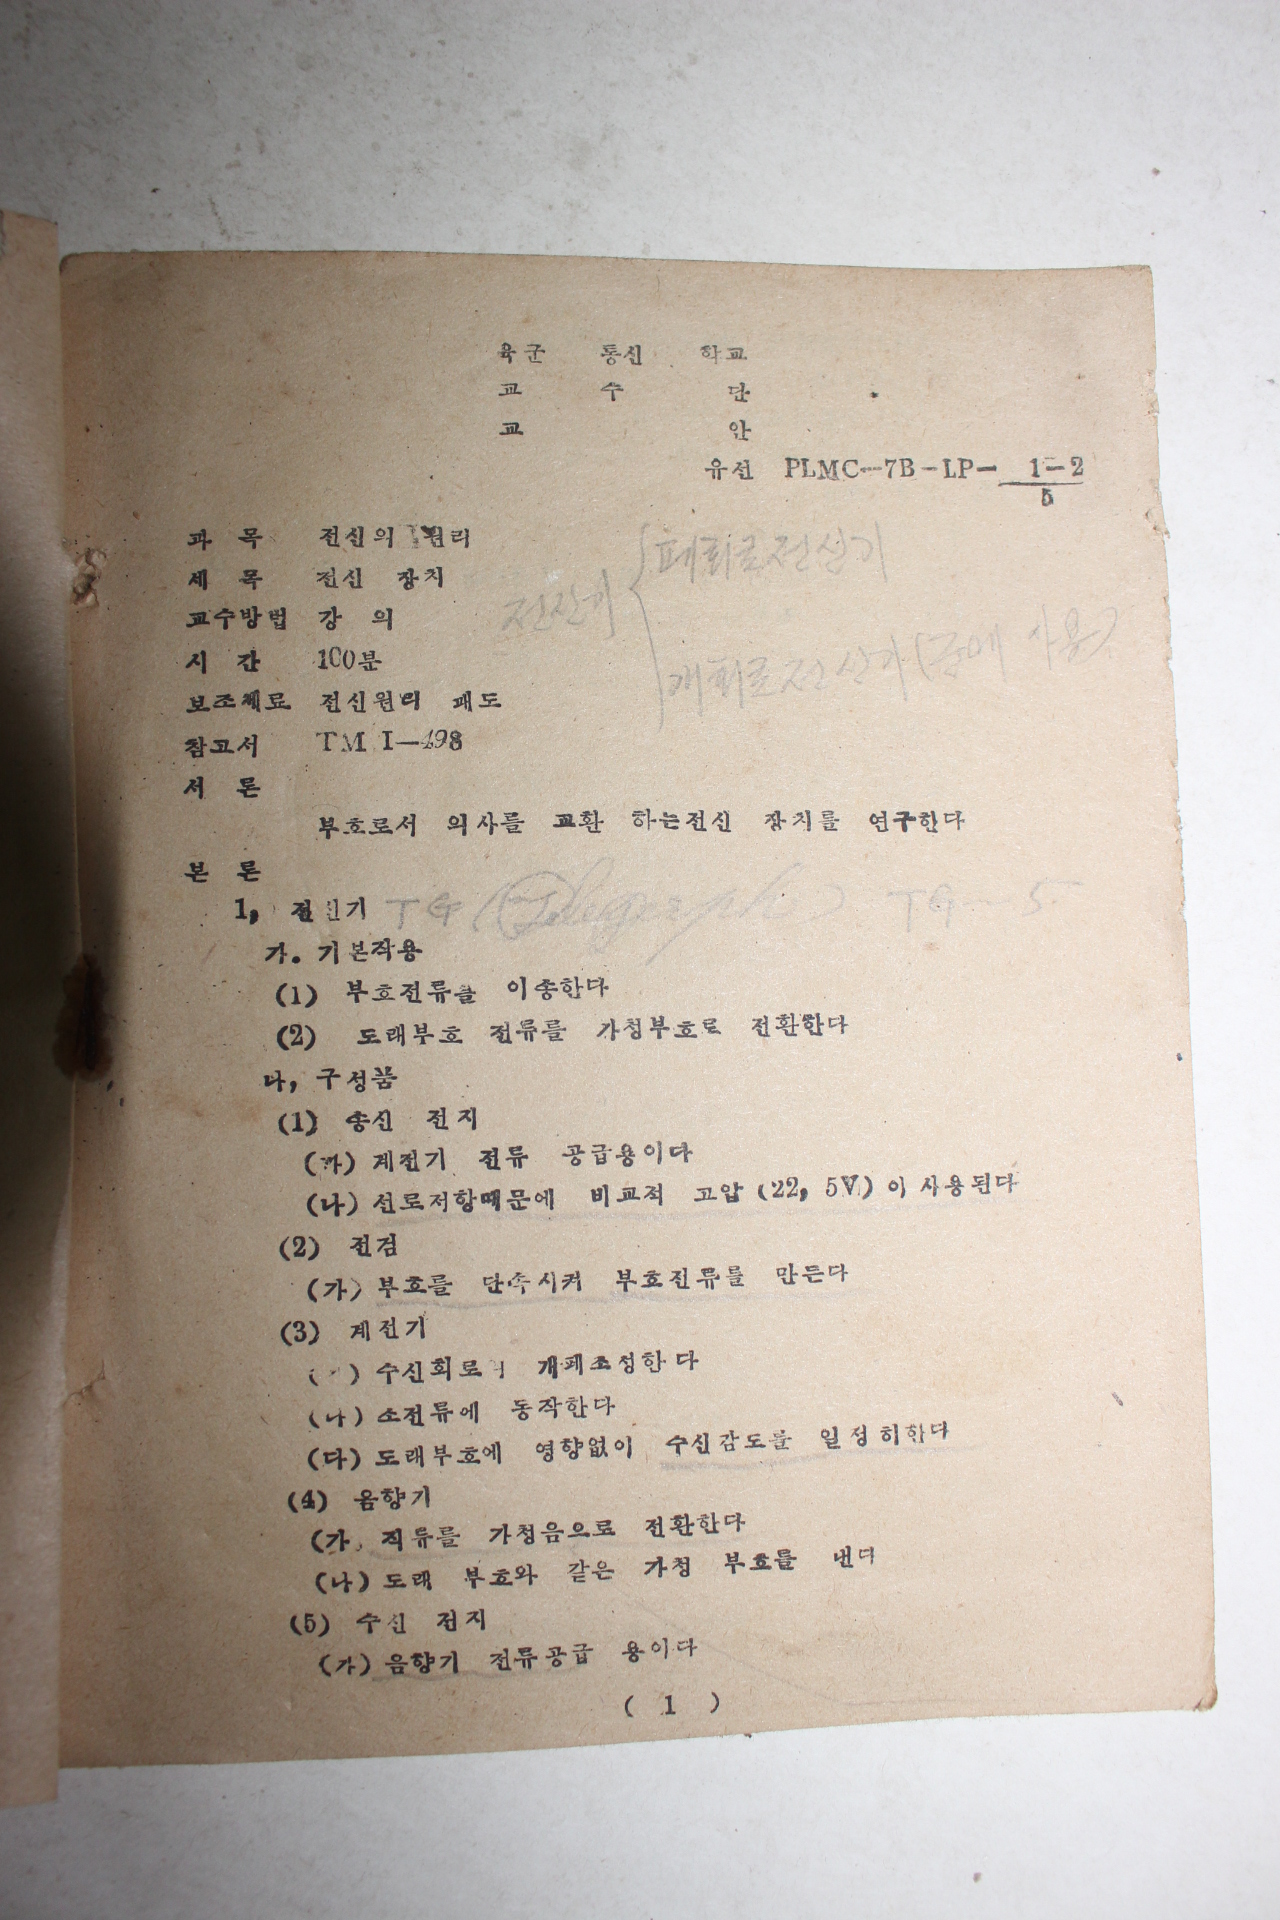 육군 통신 학교
교 수 단
교 안
유선 PLMC-7B-LP- 1-2
5
과 목 전신의 원리
세 목 전신 장치
교수방법 강 의
시 간 100분
보조재료 전신원리 괘도
참고서 TM I-498
서 론
부호로서 의사를 교환 하는전신 장치를 연구한다
본 론
1, 전신기 TG (Telegraph) TG-5
전신기
폐회로전신기
개회로전신기(군에 사용)
가. 기본작용
(1) 부호전류를 이송한다
(2) 도래부호 전류를 가청부호로 전환한다
나, 구성품
(1) 송신 전지
(가) 계전기 전류 공급용이다
(나) 선로저항때문에 비교적 고압(22, 5V)이 사용된다
(2) 전검
(가) 부호를 단속시켜 부호전류를 만든다
(3) 계전기
수신회로 개폐조성한다
(나) 소전류에 동작한다
(다) 도래부호에 영향없이 수신감도를 일정히한다
(4) 음향기
(가) 직류를 가청음으로 전환한다
(나) 도래 부호와 같은 가청 부호를 낸다
(5) 수신 전지
(가) 음향기 전류공급 용이다
( 1 )